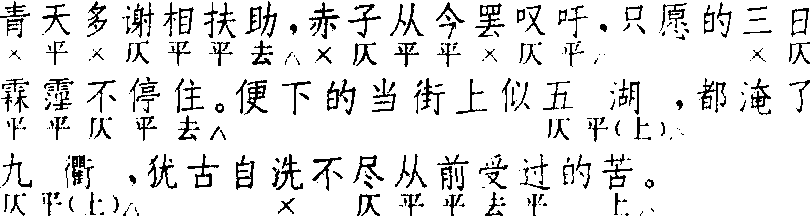 青天多谢相扶助,赤子从今罢叹吁,只愿的三日
× 平 × 仄 平 平 去△ × 仄 平 平 × 仄 平△ × 仄
霖霪不停住。便下的当街上似五 湖 ,都淹了
平 平 仄 平 去△ 仄 平(上)△
九 衢 ,犹古自洗不尽从前受过的苦。
仄 平(上)△ × 仄 平 平 去 平 上△